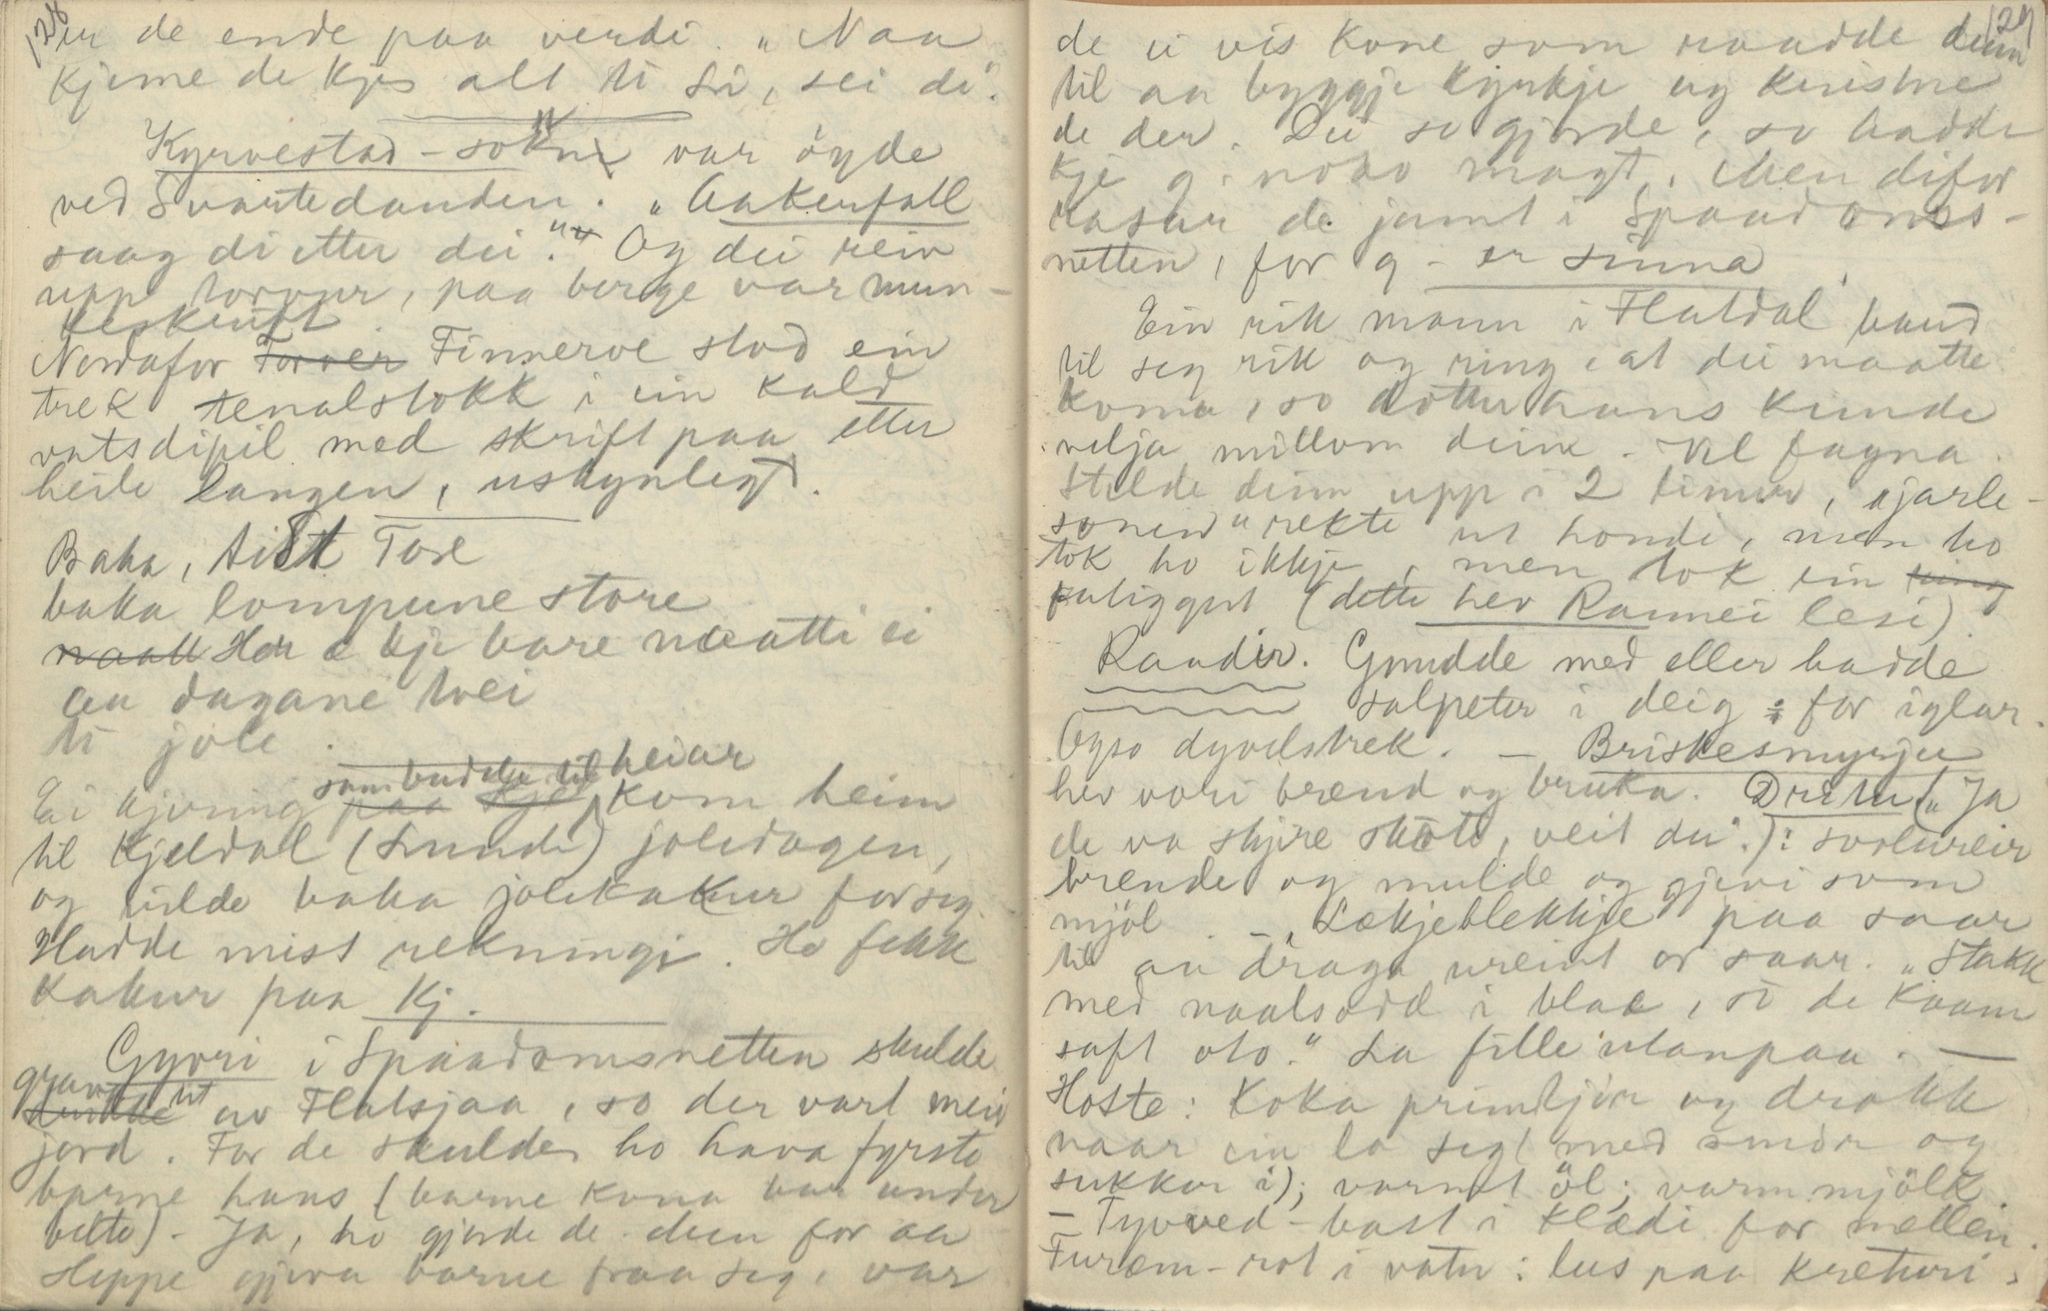 128
er de ende paa verdi. "Naa
kjeme de kje alt ti Li, sei di".
Kyrvestad-sokn var öyde
ved Svartedauden. "Aakerfall
saag di etter dei". Og dei reiv
upp torvur, paa berge var mun-
keskrift.
Nordafor Finnerve stod ein
trek tenalstokk i ein kald
vatsdipil med skrift paa etter
heile langen, uskynlegt.
Baka, tist Tore
baka lompune store
Her æ kje bare nætti ei
aa dagane tvei
ti jole.
Ei kjering som budde til heiar kom heim
til Kjeldal (Lunde) joledagen,
og vilde baka jolekakur for seg.
Hadde mist rekningi. Ho fekk
kakur paa Kj.
Gyvri i Spaadomsnetten skulde
grava ut av Flatsjaa, so der vart meir
jord. For de skulde ho hava fyrste
barne hans (barne kona bar under
belte). Ja, ho gjorde de. deen for aa
sleppe gjeva barne fraa seg, var
129
de ei vis kone som raadde deim
til aa byggje kyrkje og kristne
de der. Dei so gjorde, so hadde
kje g. noko magt. Men difor
rasar de jamt i Spaadoms-
netten, for g- er sinna.
Ein rik mann i Flatdal baud
til seg rik og ring, at dei maatte
koma, so dotter hans kunde
velja millom deim. Vel fagna.
Stelde deim upp i 2 timur, "jarle-
sonen" rekte ut hondi, men ho
tok ho ikkje, men tok ein
fatiggut (dette hev Rannei lesi)
Raadir. Gnudde med eller hadde
salpeter i deig for iglar.
Ogso dyvelstrek. - Briskesmyrju
hev vori brend og bruka. Dritu ("Ja
de va skjire skote, veit du".): svolureir
brende og mulde og gjevi som
mjöl. - Lækjeblekkje paa saar
til aa draga ureint or saar. "Stakk
med naalsodd i blae, so de kaam
saft oto." La fille utanpaa. -
Hoste: Koka primkjör og drakk
naar ein la seg (med smör og
sukkur i); varmt öl; varm mjölk.
- Tyvved-bast i klædi for möllen.
Turem-rot i vatn: lus paa kreturi.